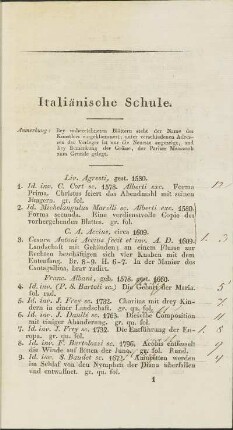 Italiänische Schule.
Anmerkung: Bey unbezeichneten Blättern steht der Name des
Künstlers eingeklammert; unter verschiedenen Adres-
sen der Verleger ist nur die Neueste angezeigt, und
bey Bemerkung der Grösse, der Pariser Maasstab
zum Grunde gelegt.
Liv. Agresti, gest. 1580.
1. Id. inv. C. Cort sc. 1578. Alberti exc. Forma
Prima. Christus feiert das Abendmahl mit seinen
Jüngern. gr. fol.
2. Id. Michelangulus Marelli sc. Alberti exc. 1580.
Forma secunda. Eine verdienstvolle Copie des
vorhergehenden Blattes. gr. fol.
C. A. Accius, circa 1609.
3. Cesare Antoni Accius fecit et inv. A. D. 1609.
Landschaft mit Gebäuden; an einem Flusse zur
Rechten beschäftigen sich vier Knaben mit dem
Entenfang. Br. 8-9. H. 6-7. in der Manier des
Cantagallina, brav radirt.
Franc. Albani, geb. 1578. gest. 1660.
4. Id. inv. (P. S. Bartoli sc.) Die Geburt der Maria.
fol. rad.
5. Id. inv. J. Frey sc. 1732. Charitas mit drey Kin-
dern in einer Landschaft. gr. qu. fol.
6. Id. inv. J. Daullé sc. 1763. Dieselbe Composition
mit einiger Abänderung. gr. qu. fol.
7. Id. inv. J. Frey sc. 1732. Die Entführung der Eu-
ropa. gr. qu. fol.
8. Id. inv. F. Bartolozzi sc. 1796. Aeolus entfesselt
die Winde auf Bitten der Juno. gr. fol. Rund.
9. Id. inv. S. Baudet sc. 1672. Amoretten werden
im Schlaf von den Nymphen der Diana überfallen
und entwaffnet. gr. qu. fol.
1